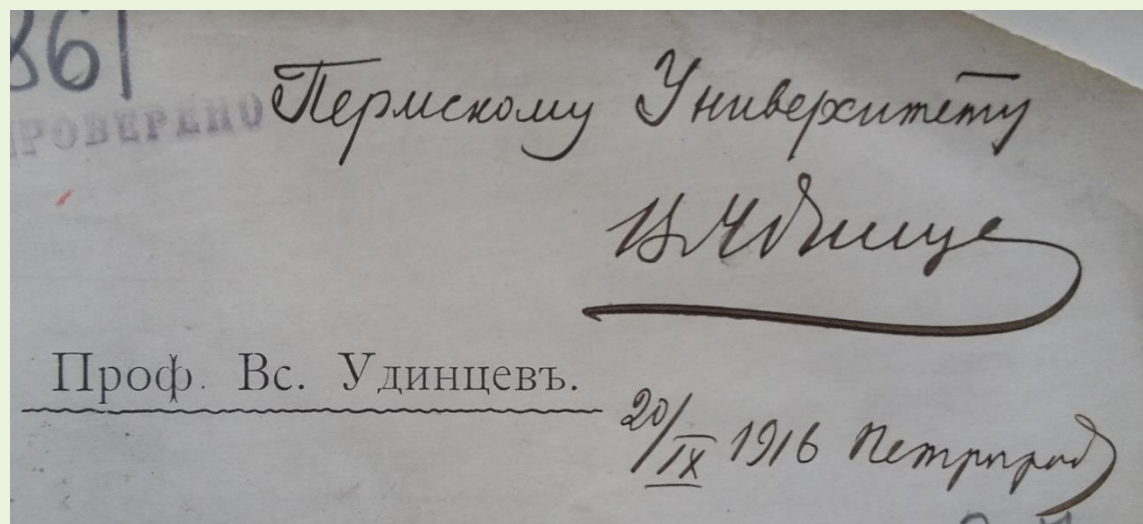 861
ПРОВЕРЕНО
Пермскому Университету
Проф. Вс. Удинцевъ.
20/IX 1916 Петроград